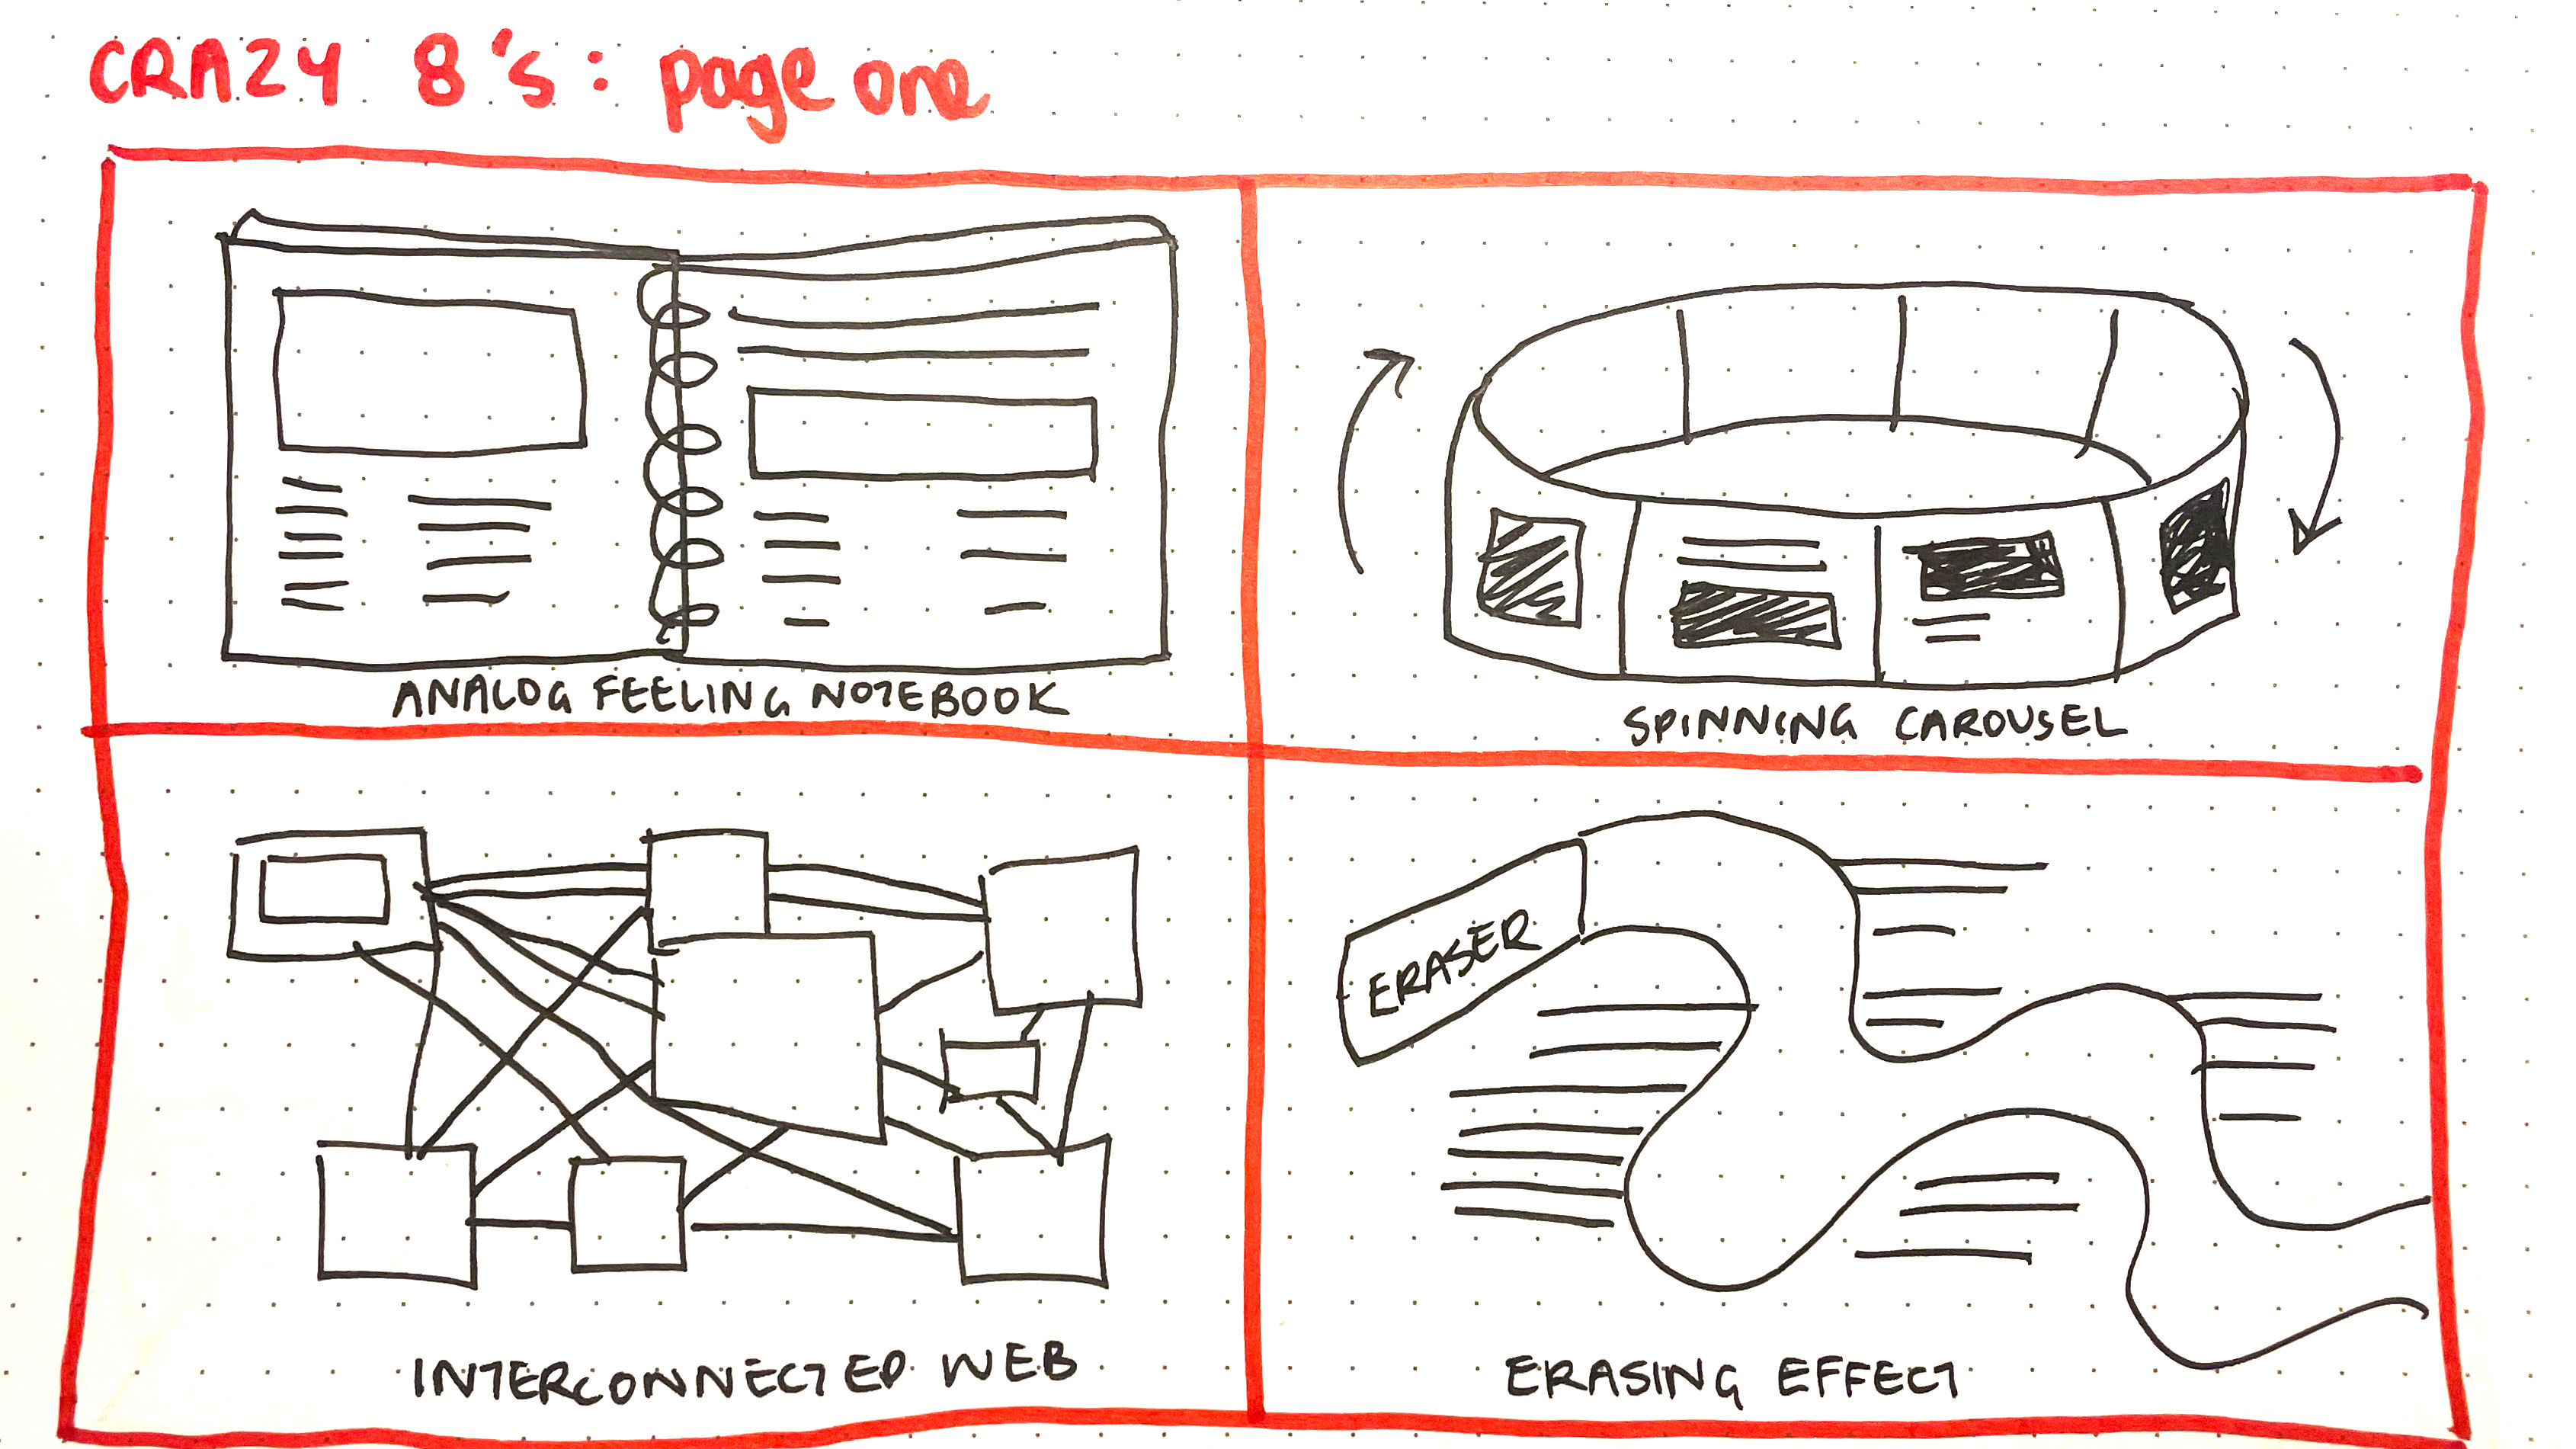 CRAZY 8's: page one
ANALOG FEELING NOTEBOOK
SPINNING CAROUSEL
ERASER
INTERCONNECTED WEB
ERASING EFFECT